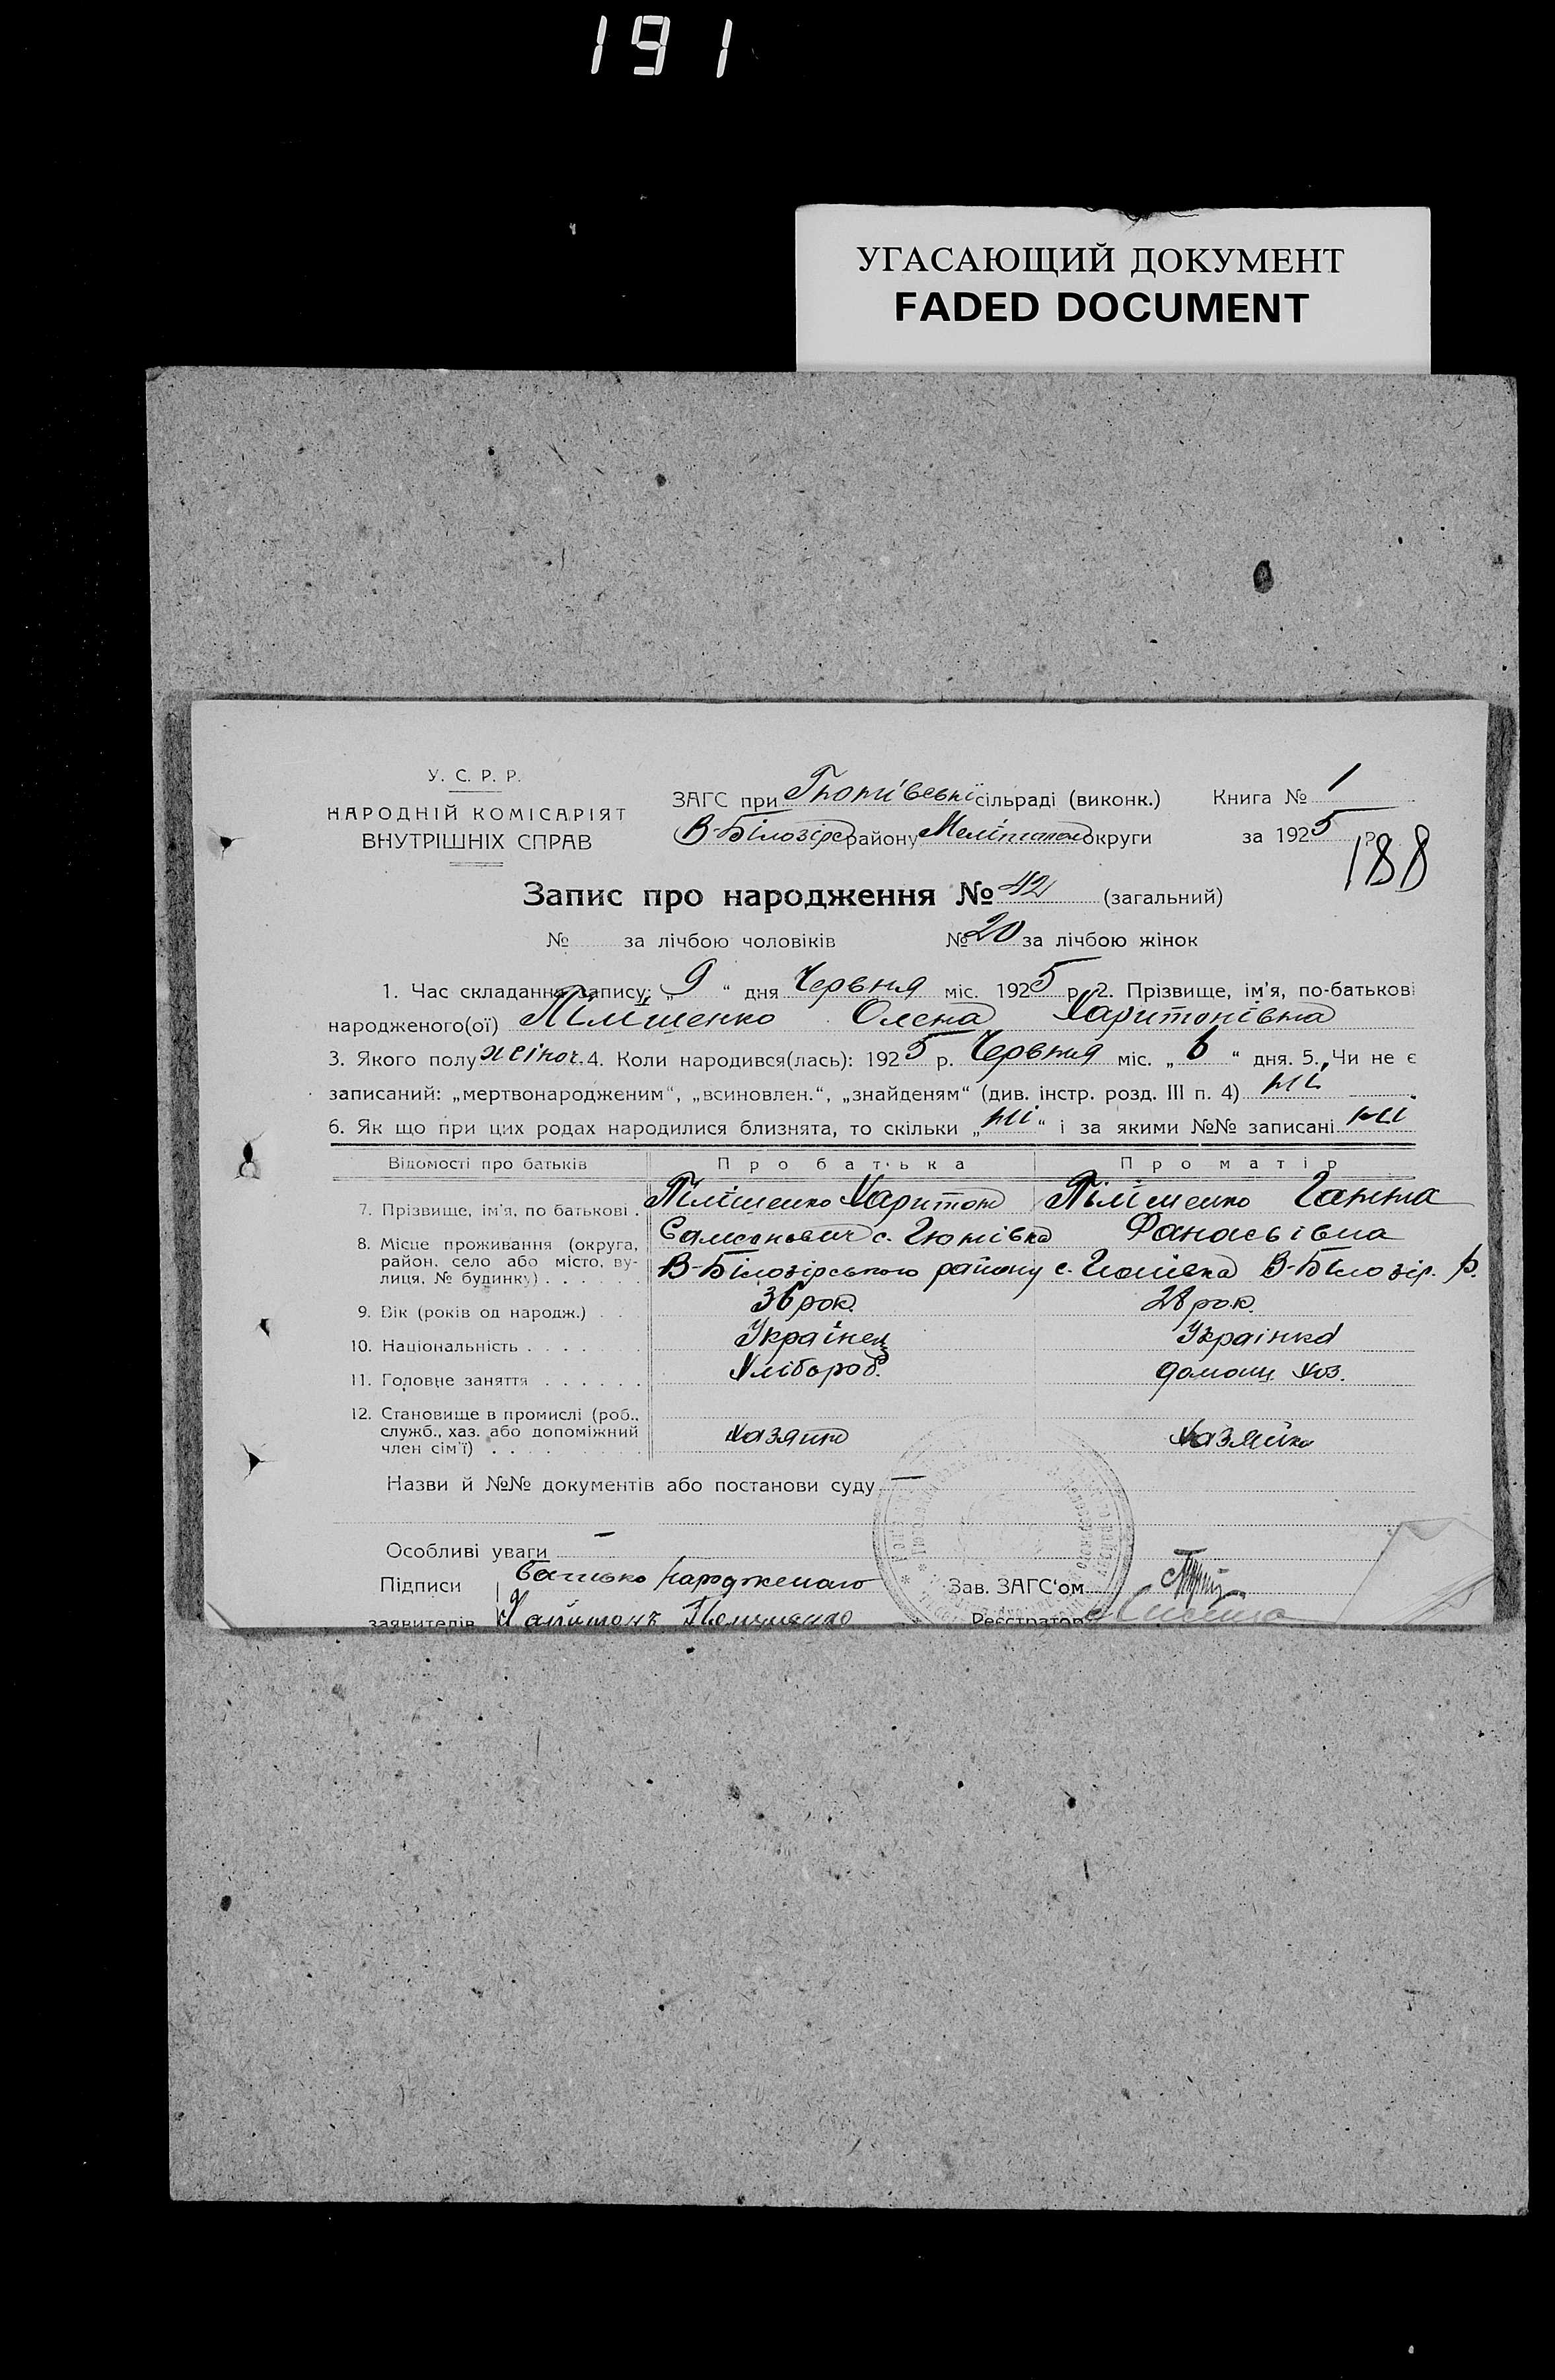 191
УГАСАЮЩИЙ ДОКУМЕНТ
FADED DOCUMENT
У. С. Р. Р.
НАРОДНІЙ КОМІСАРІЯТ
ВНУТРІШНІХ СПРАВ
ЗАГС при сільраді (виконк.) Книга № 1
В-Білозірс району Меліпол округи за 1925 р.
188
Запис про народження № 42 (загальний)
№ за лічбою чоловіків № 20 за лічбою жінок
1. Час складання запису: „9“ дня Червня міс. 1925 р. 2. Прізвище, ім'я, по-батькові
народженого(ої) Пілішенко Олена Харитонівна
3. Якого полу жіноч. 4. Коли народився(лась): 1925 р. Червня міс. „6“ дня. 5. Чи не є
записаний: „мертвонародженим“, „всиновлен.“, „знайденям“ (див. інстр. розд. III п. 4) ні
6. Як що при цих родах народилися близнята, то скільки „ні“ і за якими №№ записані ні
Відомості про батьків Про батька Про матір
7. Прізвище, ім'я, по батькові . Пілішенко Харитон Пілішенко Ганна
Самсонович с. Гюнівка Фанасьівна
8. Місце проживання (округа, район, село або місто, вулиця, № будинку) . . . . . . В-Білозірського району с. Гюнівка В-Білозір. р.
9. Вік (років од народж.) . . 36 рок. 28 рок.
10. Національність . . . . . Українец Українка
11. Головне заняття . . . . . . Хлібороб. домашн хоз.
12. Становище в промислі (роб., служб., хаз. або допоміжний член сім'ї) . . . . хазяин хазяйка
Назви й №№ документів або постанови суду —
Особливі уваги —
Підписи батько нарожденаго Зав. ЗАГС'ом
заявителів Харитонъ Реєстратор